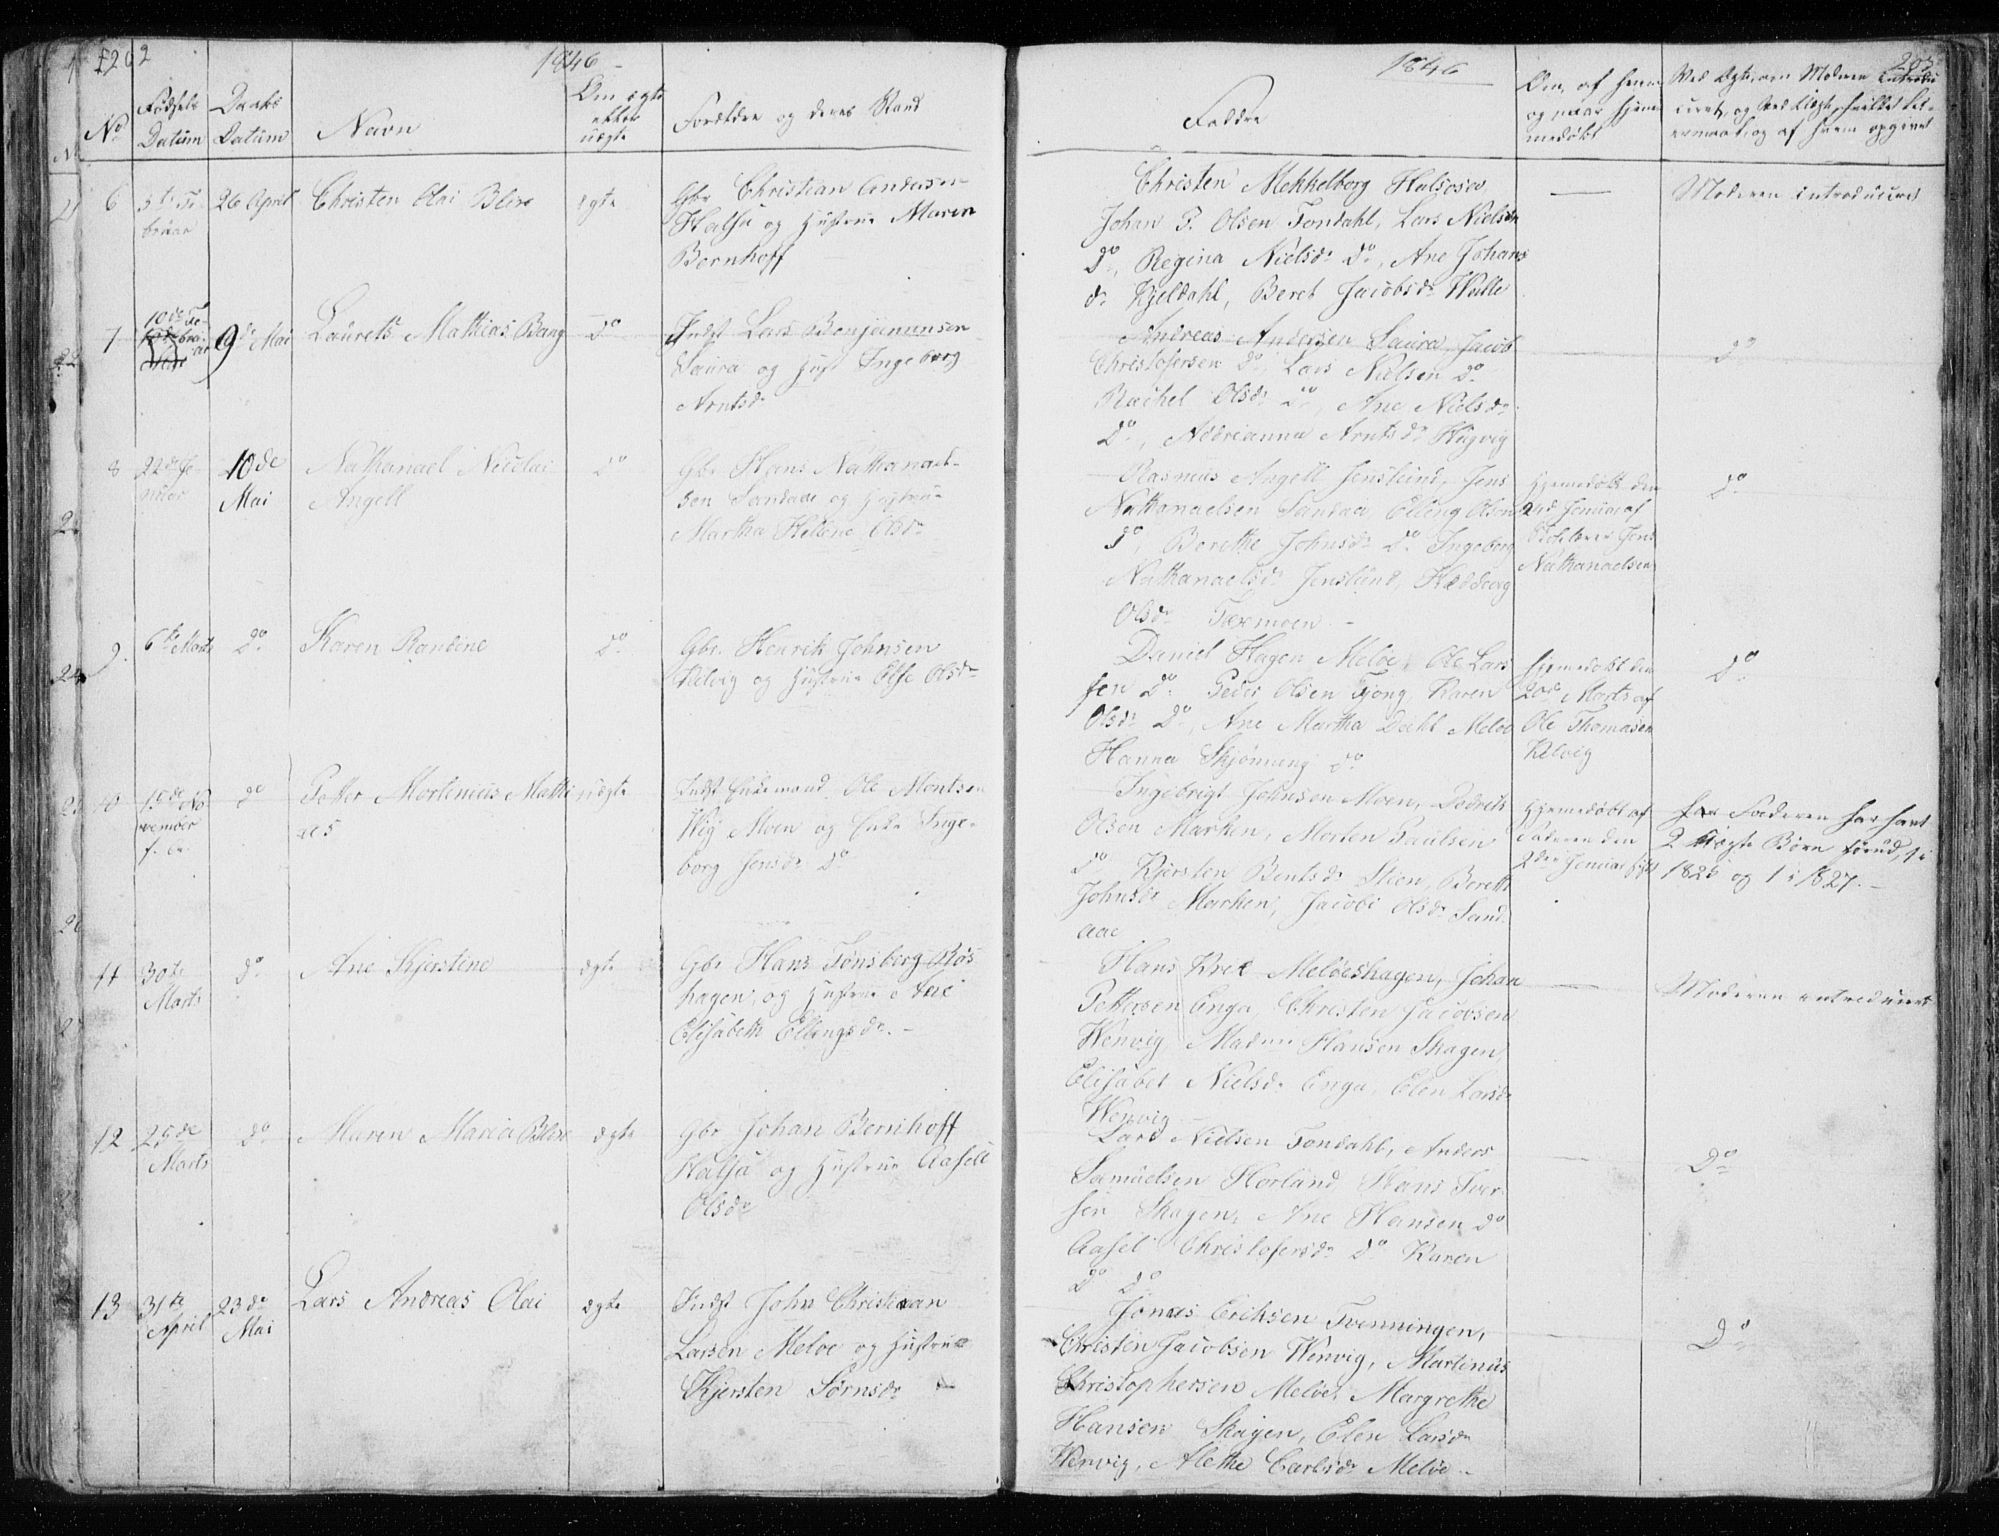 202
1846
No
Fødsels Datum
Daabs Datum
Navn
Om ægte eller uægte
Forældre og deres Stand
6
26 April
Christen Olai Blix
ægte
Gbr Christian Andersen
Halsa og Hustrue Maren
Bernhoff
7
10de Fe-
bruar
9de Mai
Laurets Mathias Bang
Do
Indst Lars Benjaminsen
Saura og Hust Ingeborg
Arntsdr
8
22de Ja-
nuar
10de
Mai
Nathanael Nicolai
Angell
Do
Gbr Hans Nathanael-
sen Sandaae og Hustrue
Martha Helene Olsdr
9.
6te Marts
Do
Karen Randine
Do
Gbr. Henrik Johnsen
Kilvig og Hustrue Else Olsdr
10
15de No
vember
f. Aar
Do
Petter Mortinius Mathi
as
uægte
Indst Enkemand Ole Mentsen
Moen og Enke Inge-
borg Jensdr Do
11
30te
Marts
Do
Ane Kjerstine
ægte
Gbr Hans Tønsberg Røs
hagen, og Hustrue Ane
Elisabeth Ellingsdr. -
12
25de
Marts
Do
Maren Maria Blix
ægte
Gbr Johan Bernhoff
Halsa og Hustrue Aasel
Olsdr
13
31te
April
23de
Mai
Lars Andreas Olai
ægte
Indst John Christian
Larsen Meløe og Hustrue
Kjersten Sørnsdr
1846
203
Faddre
Om, af hvem
og naar hjem-
medøbt
Ved Ægte, om Moderen introdu
ceret, og ved Uægte, hvilket Lei-
ermaal, og af hvem opgivet
Christen Mekkelborg Halsosen
Johan P. Olsen Fondahl, Lars Nielsen
Do, Regina Nielsdr Do, Ane Johans
dr Kjeldahl, Beret Jacobsdr Walle
Moderen introduceret
Andreas Andersen Saura, Jacob
Christofersen Do, Lars Nielsen Do
Rachel Olsdr Do, Ane Nielsdr
Do, Adrianna Arntsdr Hugvig
Do
Rasmus Angell Jenslund, Jens
Nathanaelsen Sandaa Elling Olsen
Do, Berethe Johnsdr Do Ingeborg
Nathanaelsdr Jenslund, Hedevig
Olsdr Farmoen -
Hjemmedøbt den
22d Januar af
Skolelærer Jens
Nathanaelsen
Do
Daniel Hagen Meløe, Ole Lars
sen Do Peder Olsen Tjong, Karen
Olsdr Do, Ane Martha Dahl Meløe
Hanna Skjønning Do
Hjemmedøbt den
20de Marts af
Ole Thomasen
Kilvig
Do
Ingebrigt Johnsen Moen, Dedrik
Olsen Marken, Morten Paulsen
Do Kjersten Bentsdr Stien, Beret
Johnsdr Marken, Jacobi Olsdr Sand
aae
Hjemmedøbt af
Faderen den
2den Januar
Faderen har havt
2 Uægte Børn forud, 1 i
1825 og 1 i 1827. -
Hans Krek Meløeshagen, Johan
Pettersen Enga, Christen Jacobsen
Wenvig, Madme Hansen Skagen,
Elisabet Nielsdr Enga, Elen Larsdr
Wenvig -
Moderen introduceret
Lars Nielsen Fondahl, Anders
Samuelsen Horland Hans Iver-
sen Skagen, Ane Hansen Do
Aasel Christofersdr Do Karen
Do Do
Do
Jonas Erichsen Tvenningen,
Christen Jacobsen Wenvig, Martinus
Christophersen Meløe, Margrethe
Hansen Skagen, Elen Larsdr
Wenvig, Alethe Carlsdr Meløe -
Do